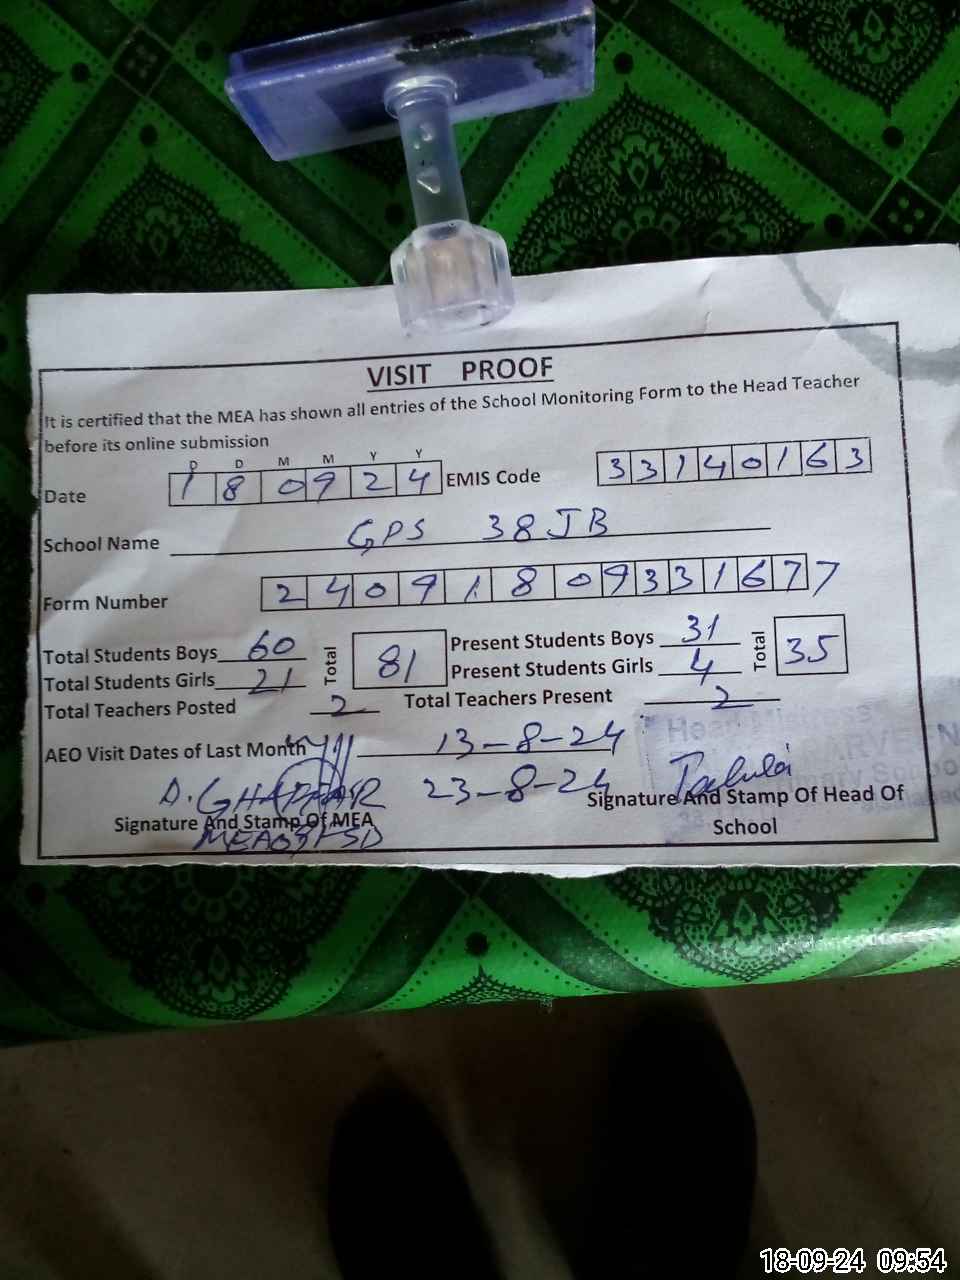 VISIT PROOF
It is certified that the MEA has shown all entries of the School Monitoring Form to the Head Teacher
before its online submission
D D M M Y Y
Date 180924 EMIS Code 33140163
School Name GPS 38 JB
Form Number 24091809331677
Total Students Boys 60 Total 81 Present Students Boys 31 Total 35
Total Students Girls 21 Present Students Girls 4
Total Teachers Posted 2 Total Teachers Present 2
AEO Visit Dates of Last Month 13-8-24
23-8-24
Head Mistress
Signature And Stamp Of MEA
Signature And Stamp Of Head Of
School
18-09-24 09:54